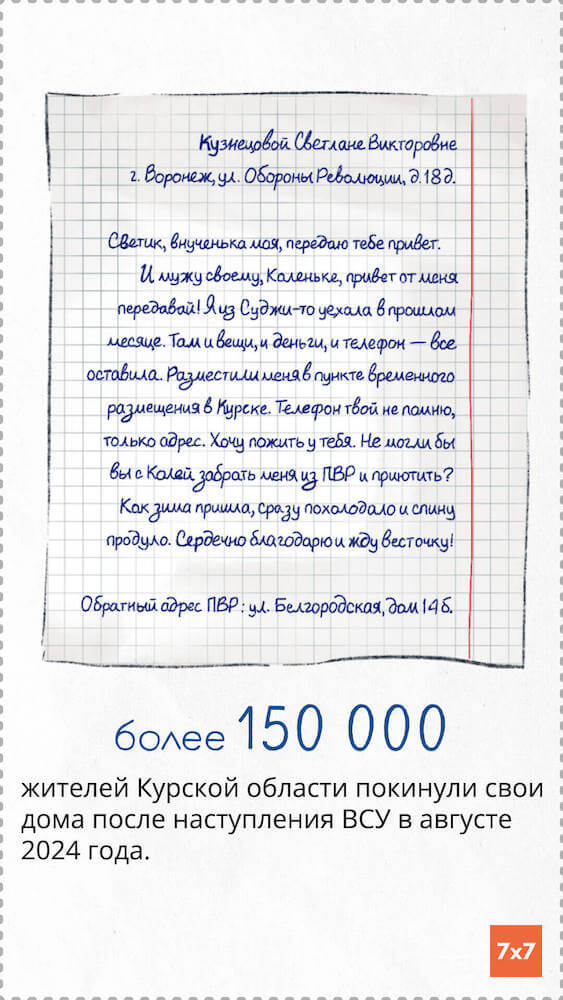 Кузнецовой Светлане Викторовне
г. Воронеж, ул. Обороны Революции, д. 18д.
Светик, внученька моя, передаю тебе привет.
И мужу своему, Каленьке, привет от меня
передавай! Я из Суджи-то уехала в прошлом
месяце. Там и вещи, и деньги, и телефон — все
оставила. Разместили меня в пункте временного
размещения в Курске. Телефон твой не помню,
только адрес. Хочу пожить у тебя. Не могли бы
вы с Колей забрать меня из ПВР и приютить?
Как зима пришла, сразу похолодало и спину
продуло. Сердечно благодарю и жду весточку!
Обратный адрес ПВР: ул. Белгородская, дом 14б.
более 150 000
жителей Курской области покинули свои
дома после наступления ВСУ в августе
2024 года.
7x7